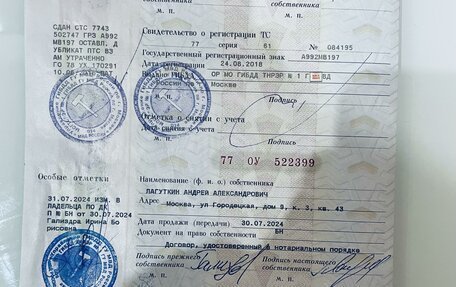 м. п.
СДАН СТС 7743
502747 ГРЗ А992
МВ197 ОСТАВЛ. Д
УБЛИКАТ ПТС ВЗ
АМ УТРАЧЕННО
ГО 78 УХ 170291
Свидетельство о регистрации ТС
77 серия 61 № 084195
Государственный регистрационный знак А992МВ197
Дата регистрации 24.08.2018
Выдано ГИБДД ОР МО ГИБДД ТНРЭР № 1 ВД
России Москве
М. П.
Подпись
Отметка о снятии с учета
Дата снятия с учета
М. П.
Подпись
77 ОУ 522399
Особые отметки
31.07.2024 ИЗМ. В
ЛАДЕЛЬЦА ПО ДК
П № БН от 30.07.2024
Галиадра Ирина Бо
рисовна
Наименование (ф. и. о.) собственника
ЛАГУТКИН АНДРЕЙ АЛЕКСАНДРОВИЧ
Адрес Москва, ул Городецкая, дом 9, к. 3, кв. 43
Дата продажи (передачи) 30.07.2024
Документ на право собственности БН
Договор, удостоверенный в нотариальном порядке
Подпись прежнего собственника
Подпись настоящего собственника
м. п.
м. п.